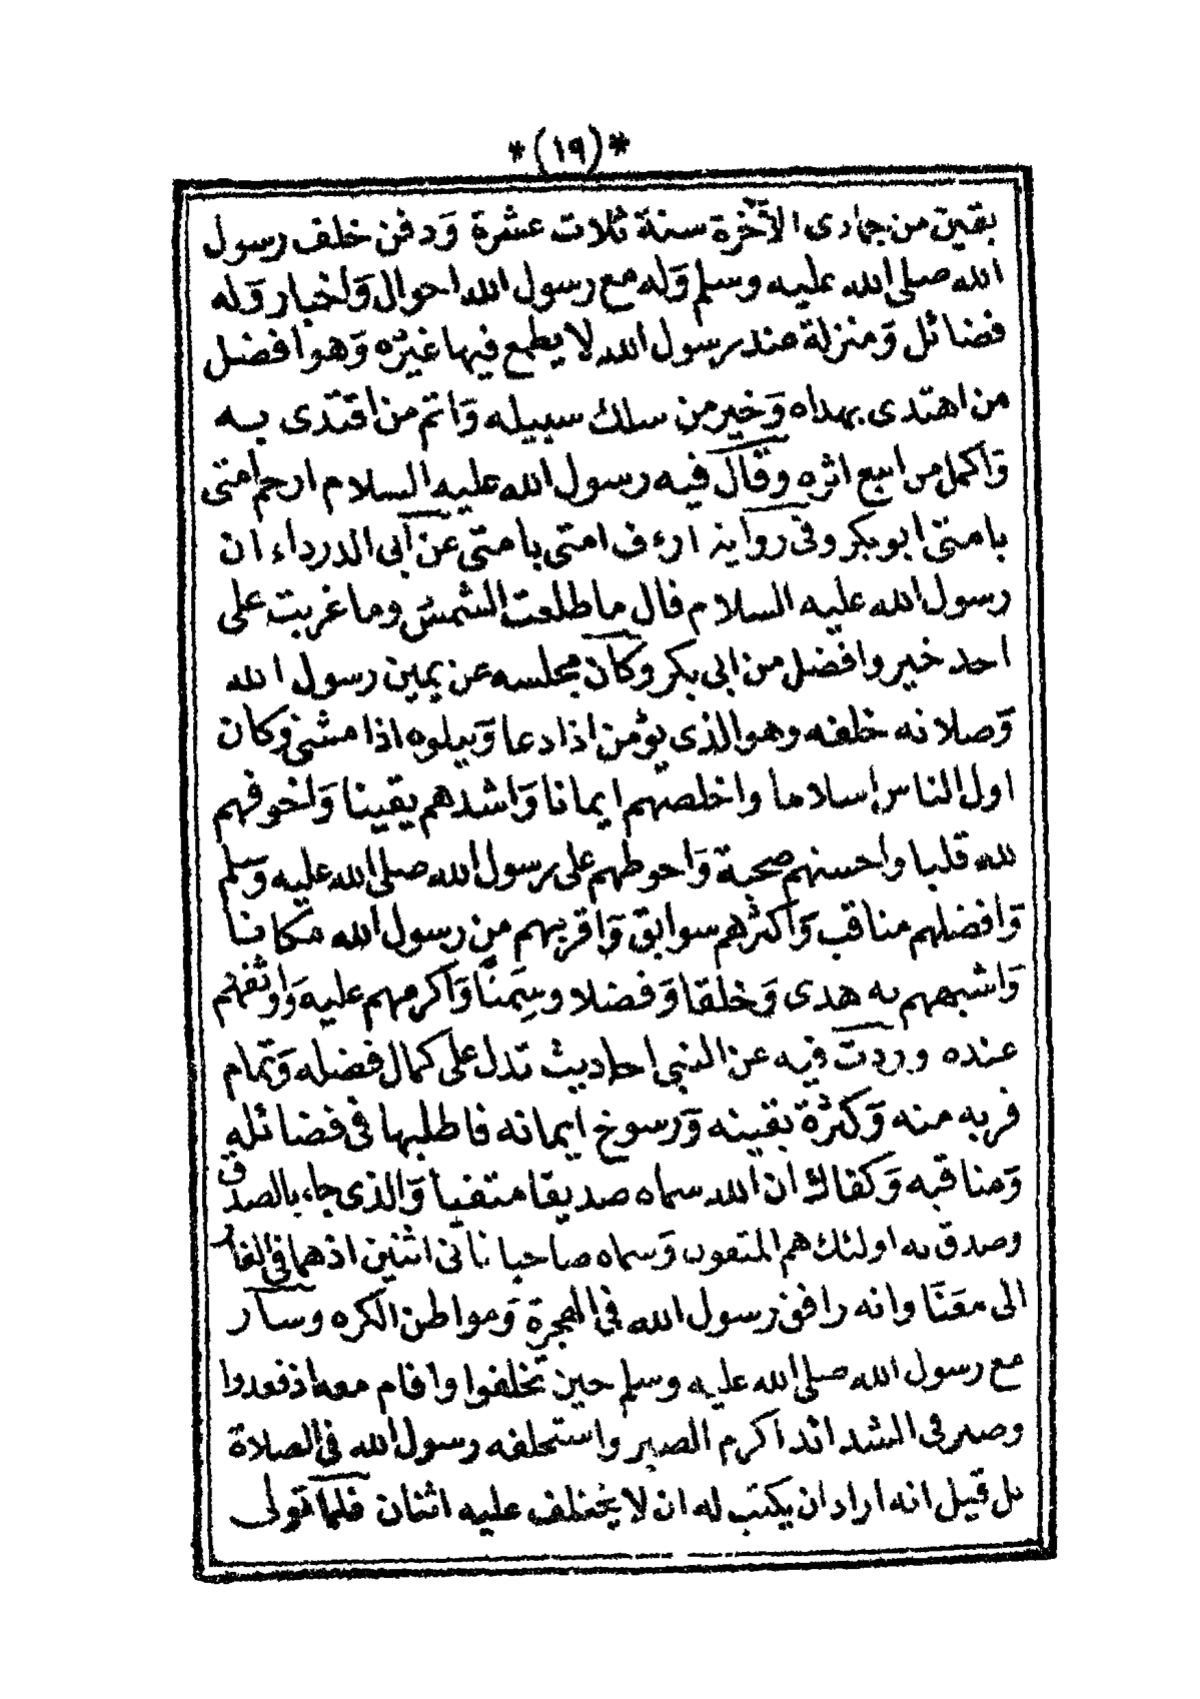 *(١٩)*
بقين من جمادى الآخرة سنة ثلاث عشرة وَدفن خلف رسول
الله صلى الله عليه وسلم وَله مع رسول الله احوال وَاخبار وَله
فضائل وَمنزلة عند رسول الله لا يطمع فيها غيرُه وَهو افضل
من اهتدى بهداه وَخير من سلك سبيله وَاتم من اقتدى به
وَاكمل من اتبع اثره وقال فيه رسول الله عليه السلام ارحم امتى
بامتى ابو بكر وفى رواية ارءف امتى بامتى عن ابى الدرداء ان
رسول الله عليه السلام قال ما طلعت الشمس وما غربت على
احد خير وافضل من ابى بكر وكان مجلسه عن يمين رسول الله
وَصلاته خلفه وهو الذى يؤمن اذا دعا وَيتلوه اذا مشى وكان
اول الناس اسلاما واخلصهم ايمانا وَاشدهم يقينا وَاخوفهم
لله قلبا واحسنهم صحبة وَاحوطهم على رسول الله صلى الله عليه وَسلم
وَافضلهم مناقب وَاكثرهم سوابق وَاقربهم من رسول الله مكانا
وَاشبههم به هدى وَخلقا وَفضلا وسِمتًا وَاكرمهم عليه وَاوثقهم
عنده ووردت فيه عن النبى احاديث تدل على كمال فضله وَتمام
قربه منه وَكثرة يقينه وَرسوخ ايمانه فاطلبها فى فضائله
وَمناقبه وَكفاك ان الله سماه صديقا متقيا وَالذى جاء بالصدق
وصدق به اولئك هم المتقون وَسماه صاحبا ثانى اثنين اذ هما فى الغار
الى معَنَا وانه رافق رسول الله فى الهجرة وَمواطن الكره وسار
مع رسول الله صلى الله عليه وسلم حين تخلفوا واقام معه اذ قعدوا
وصبر فى الشدائد اكرم الصبر واستخلفه رسول الله فى الصلاة
بل قيل انه اراد ان يكتب له ان لا يختلف عليه اثنان فلما تولى